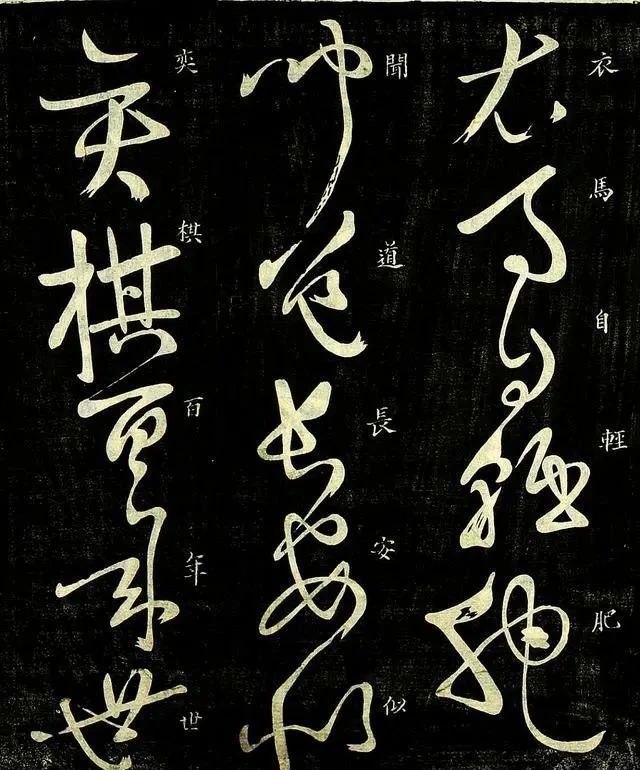 衣馬自輕肥
聞道長安似
奕棋百年世